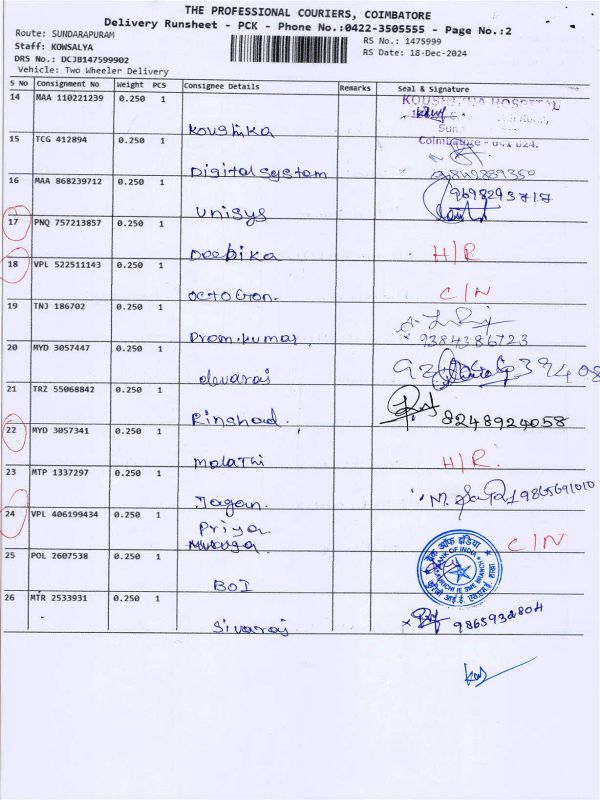 THE PROFESSIONAL COURIERS, COIMBATORE
Delivery Runsheet - PCK - Phone No.:0422-3505555 - Page No.:2
Route: SUNDARAPURAM
RS No.: 1475999
Staff: KOWSALYA
RS Date: 18-Dec-2024
DRS No.: DCJB147599902
Vehicle: Two Wheeler Delivery
S No Consignment No Weight PCS Consignee Details Remarks Seal & Signature
14 MAA 110221239 0.250 1
Koushika
HOSPITAL
Coimbatore - 641 024.
15 TCG 412894 0.250 1
Digital system
9842889350
16 MAA 868239712 0.250 1
Unisys
9698293717
17 PNQ 757213857 0.250 1
Deepika H/R
18 VPL 522511143 0.250 1
Octogon. C/N
19 TNJ 186702 0.250 1
Prem.kumar
9384386723
20 MYD 3057447 0.250 1
devaraj
21 TRZ 55068842 0.250 1
Rinshad. 8248924058
22 MYD 3057341 0.250 1
Malathi H/R.
23 MTP 1337297 0.250 1
Jagan. 9865691010
24 VPL 406199434 0.250 1
Priya
C/N
25 POL 2607538 0.250 1
BOI
बैंक ऑफ इंडिया
BANK OF INDIA
26 MTR 2533931 0.250 1
Sivaraj 9865932804